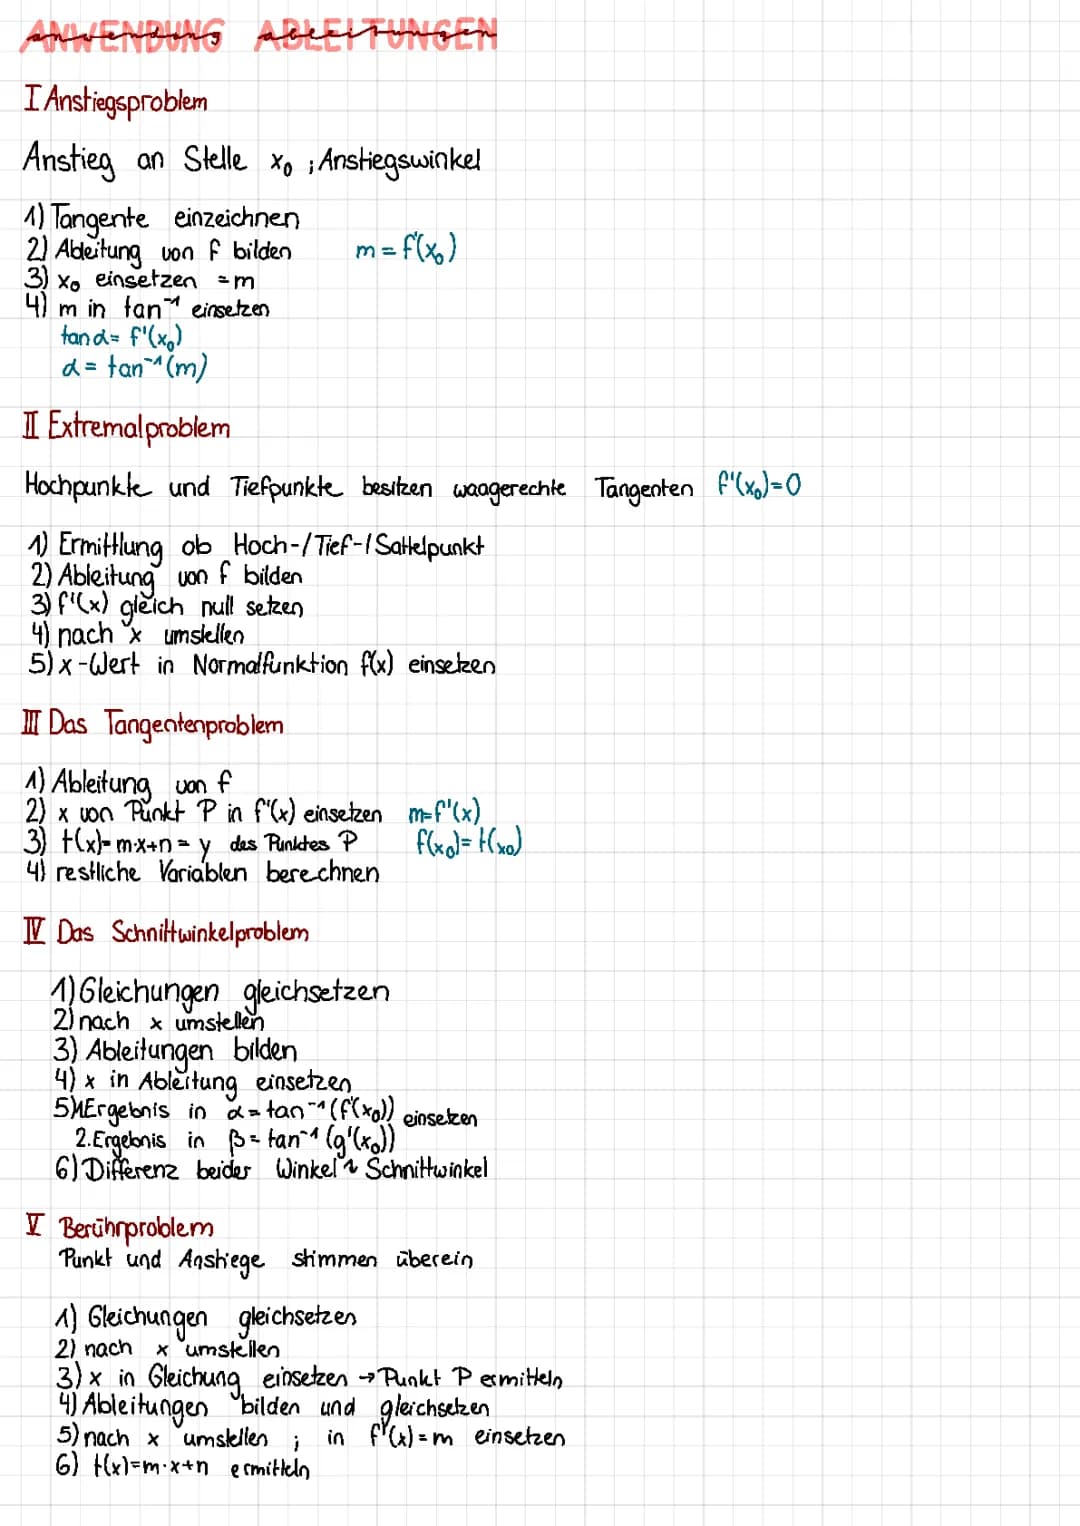 ANWENDUNG ABLEITUNGEN
anwendung ableitungen
I Anstiegsproblem
Anstieg an Stelle x₀ ; Anstiegswinkel
1) Tangente einzeichnen
2) Ableitung von f bilden m = f'(x₀)
3) x₀ einsetzen = m
4) m in tan⁻¹ einsetzen
tan α = f'(x₀)
α = tan⁻¹(m)
II Extremalproblem
Hochpunkte und Tiefpunkte besitzen waagerechte Tangenten f'(x₀)=0
1) Ermittlung ob Hoch-/Tief-/Sattelpunkt
2) Ableitung von f bilden
3) f'(x) gleich null setzen
4) nach x umstellen
5) x-Wert in Normalfunktion f(x) einsetzen
III Das Tangentenproblem
1) Ableitung von f
2) x von Punkt P in f'(x) einsetzen m=f'(x)
3) t(x)=m·x+n = y des Punktes P f(x₀)=t(x₀)
4) restliche Variablen berechnen
IV Das Schnittwinkelproblem
1) Gleichungen gleichsetzen
2) nach x umstellen
3) Ableitungen bilden
4) x in Ableitung einsetzen
5) 1.Ergebnis in α = tan⁻¹(f'(x₀)) einsetzen
2.Ergebnis in β = tan⁻¹(g'(x₀))
6) Differenz beider Winkel ~ Schnittwinkel
V Berührproblem
Punkt und Anstiege stimmen überein
1) Gleichungen gleichsetzen
2) nach x umstellen
3) x in Gleichung einsetzen → Punkt P ermitteln
4) Ableitungen bilden und gleichsetzen
5) nach x umstellen ; in f'(x) = m einsetzen
6) t(x)=m·x+n ermitteln